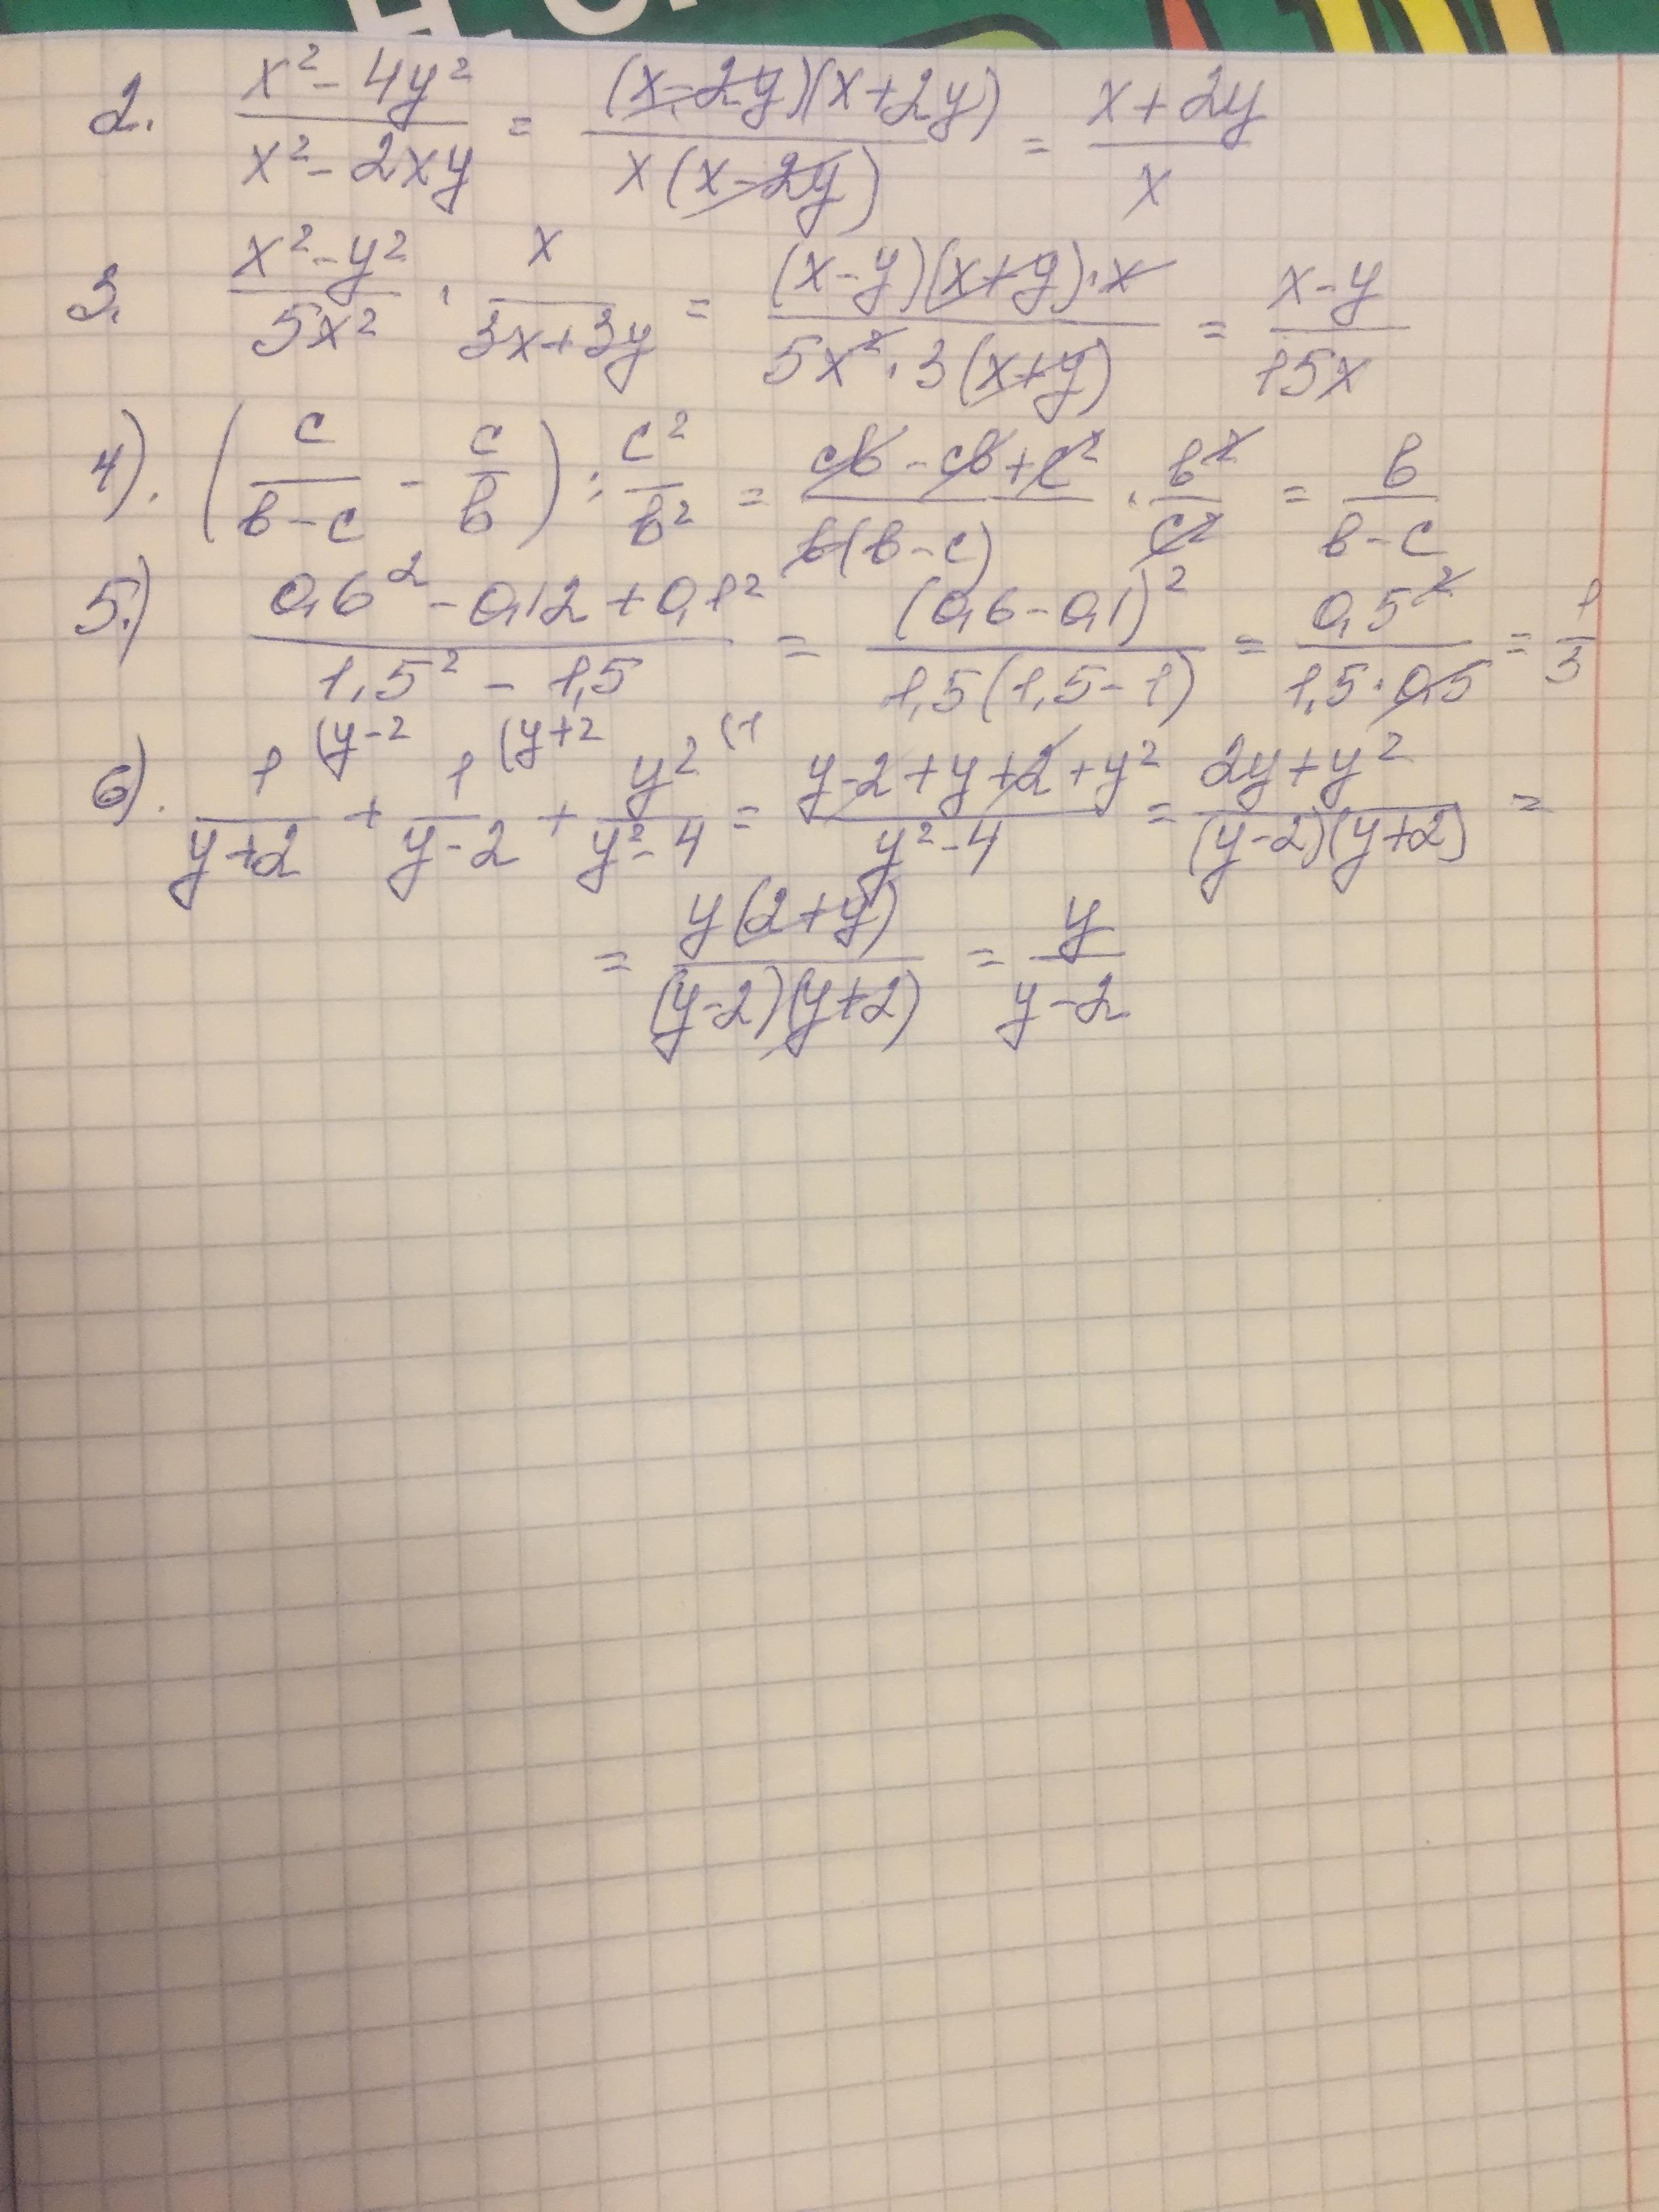 2. (x² - 4y²)/(x² - 2xy) = ((x - 2y)(x + 2y))/(x(x - 2y)) = (x + 2y)/x
3. (x² - y²)/(5x²) · x/(3x + 3y) = ((x - y)(x + y) · x)/(5x² · 3(x + y)) = (x - y)/(15x)
4). (c/(b - c) - c/b) : c²/b² = (cb - cb + c²)/(b(b - c)) · b²/c² = b/(b - c)
5.) (0,6² - 0,12 + 0,1²)/(1,5² - 1,5) = (0,6 - 0,1)²/(1,5(1,5 - 1)) = 0,5²/(1,5 · 0,5) = 1/3
(y-2 (y+2 (1
6). 1/(y + 2) + 1/(y - 2) + y²/(y² - 4) = (y - 2 + y + 2 + y²)/(y² - 4) = (2y + y²)/((y - 2)(y + 2)) =
= (y(2 + y))/((y - 2)(y + 2)) = y/(y - 2)